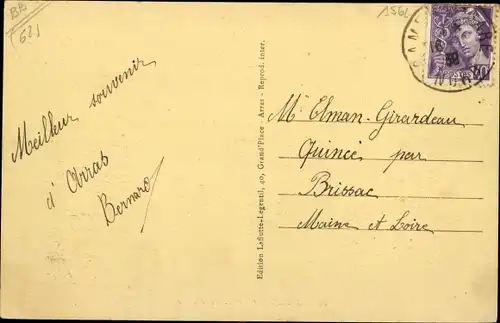 B5
62)
1562
Meilleur souvenir
d'Arras
Bernard
Edition Laflutte-Legentil, 40, Grand'Place - Arras - Reprod. inter.
Mr Elman-Girardeau
Quincé par
Brissac
Maine et Loire